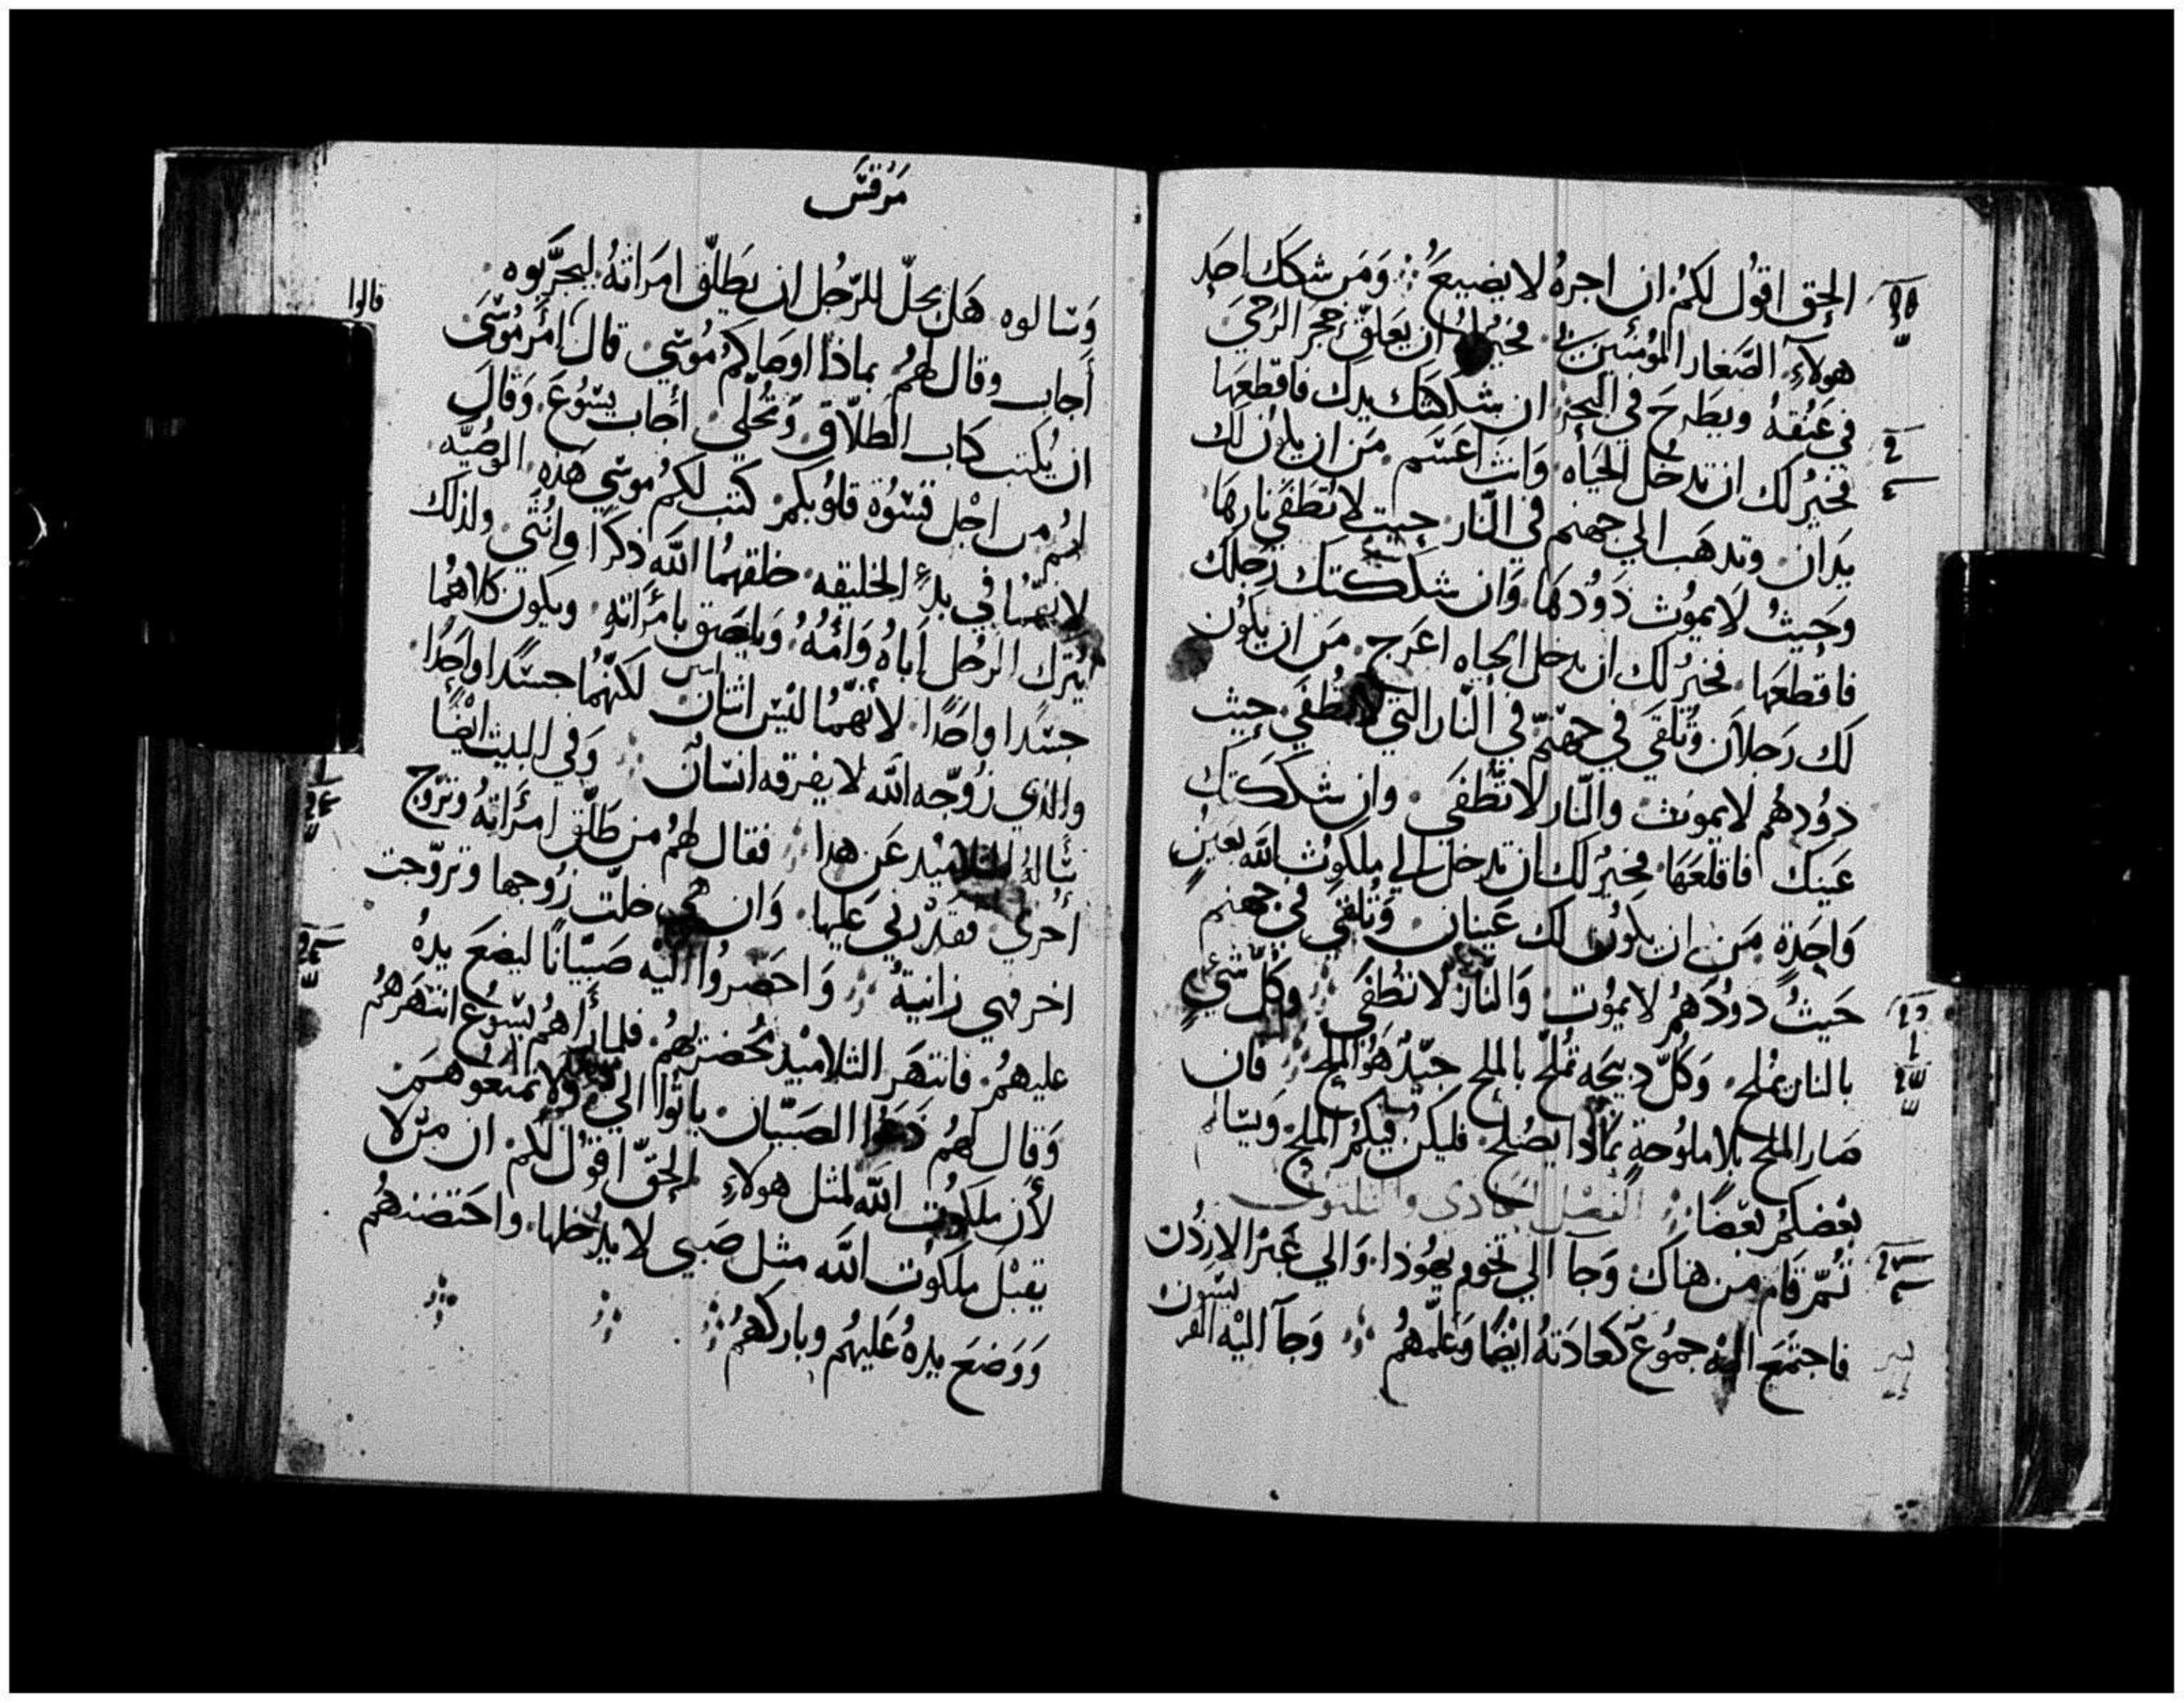 الحق اقول لكم ان اجره لا يضيع ۞ وَمَن شكك احد
هولاء الصغار المؤمنين بي فخير له ان يعلق حجر الرحي
في عنقه ويطرح في البحر ان شككتك يدك فاقطعها
فخير لك ان تدخل الحياه وانت اعسم من ان يكون لك
يدان وتدهب الي جهنم في النار حيت لا تطفي نارها
وحيث لا يموت دودها وان شككتك رجلك
فاقطعها فخير لك ان تدخل الحياه اعرج من ان يكون
لك رجلان وتلقي في جهنم في النار التي لا تطفي حيث
دودهم لا يموت والنار لا تطفي وان شككتك
عينك فاقلعها فخير لك ان تدخل الي ملكوت الله بعين
واحدة من ان يكون لك عينان وتلقي في جهنم
حيث دودهم لا يموت والنار لا تطفي وكل شي
بالنار يملح وكل دبيحه تملح بالملح جيد هو الملح فان
صار الملح بلا ملوحة بماذا يصلح فليكن فيكم الملح ويسالم
بعضكم بعضا الفصل الحادي والثلثون
ثم قام من هناك وجا الي تخوم يهوذا والي عبر الاردن
فاجتمع اليه جموع كعادته ايضا وعلمهم وجآ اليه الفر
يسيون
مرقس
وسالوه هل يحل للرجل ان يطلق امراته ليجربوه
اجاب وقال لهم بماذا اوصاكم موسي قال امر موسي
قالوا
ان يكتب كتاب الطلاق وتخلي اجاب يسوع وقال
لهم من اجل قسوة قلوبكم كتب لكم موسي هذه الوصيه
لانهما في بدء الخليقه خلقهما الله ذكرا وانثي ولذلك
يترك الرجل اباه وامه ويلصق بامراته ويكون كلاهما
جسدا واحدا لانهما ليس اثنان لكنهما جسدا واحدا
اثنين
والذي زوجه الله لا يفرقه انسان وفي البيت ايضا
ساله التلاميد عن هدا فقال لهم من طلق امراته وتزوج
اخري فقد زني عليها وان هي خلت زوجها وتزوجت
اخر فهي زانية واحضروا اليه صبيانا ليضع يده
عليهم فانتهر التلاميذ محضريهم فلما راهم يسوع انتهرهم
وقال لهم دعوا الصبيان ياتوا الي ولا تمنعوهم
لان ملكوت الله لمثل هولاء الحق اقول لكم ان من لا
يقبل ملكوت الله مثل صبي لا يدخلها واحتضنهم
ووضع يده عليهم وباركهم